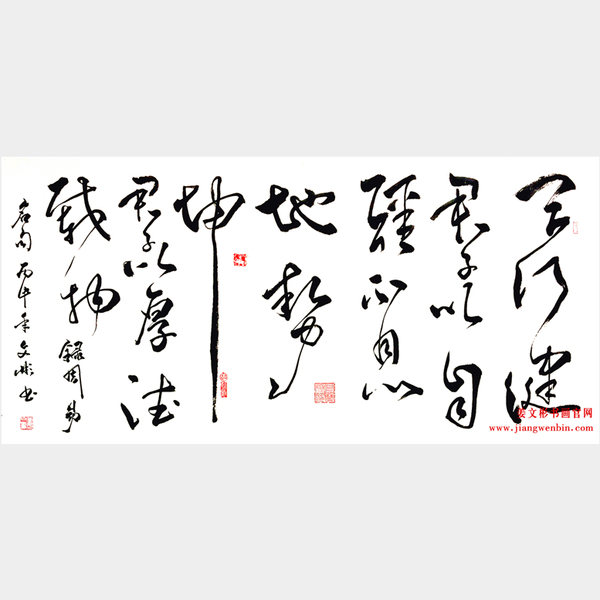 天行健
君子以自
强不息
地势
坤
君子以厚德
载物
录周易
名句 丙午年文彬书
姜文彬书画官网
www.jiangwenbin.com